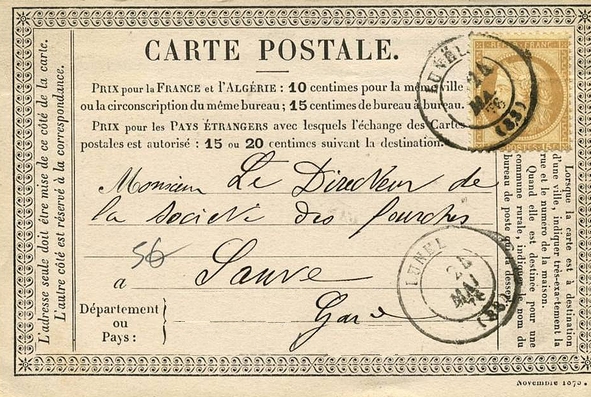 CARTE POSTALE.
PRIX pour la FRANCE et l'ALGÉRIE: 10 centimes pour la même ville
ou la circonscription du même bureau; 15 centimes de bureau à bureau.
PRIX pour les PAYS ÉTRANGERS avec lesquels l'échange des Cartes
postales est autorisé : 15 ou 20 centimes suivant la destination.
L'adresse seule doit être mise de ce côté de la carte.
L'autre côté est réservé à la correspondance.
Monsieur Le Directeur de
la Société des fourches
56
à Sauve
Département
ou
Pays:
Gard
Lorsque la carte est à destination
d'une ville, indiquer très-exactement la
rue et le numéro de la maison.
Quand elle est destinée pour une
commune rurale, indiquer le nom du
bureau de poste qui la dessert.
LUNEL
24
MAI
(33)
LUNEL
24
MAI
(33)
REP FRANC
15
Novembre 1875.